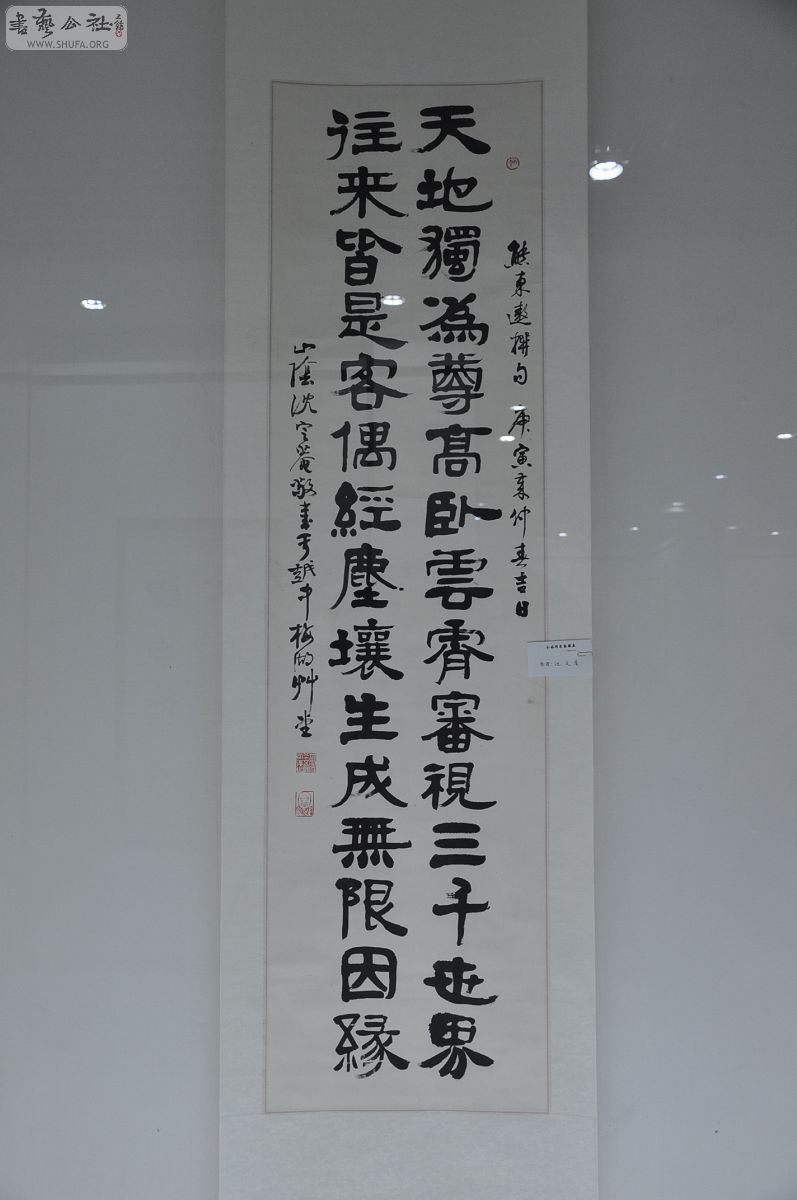 書藝公社
WWW.SHUFA.ORG
熊東遨撰句 庚寅年仲春吉日
天地獨為尊高卧雲霄審視三千世界
往来皆是客偶經塵壤生成無限因緣
山陰沈定菴敬書于越中梅湖艸堂